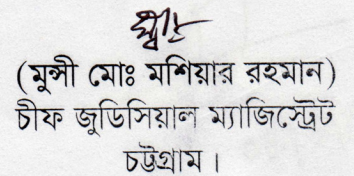 (মুন্সী মোঃ মশিয়ার রহমান)
চীফ জুডিসিয়াল ম্যাজিস্ট্রেট
চট্টগ্রাম।